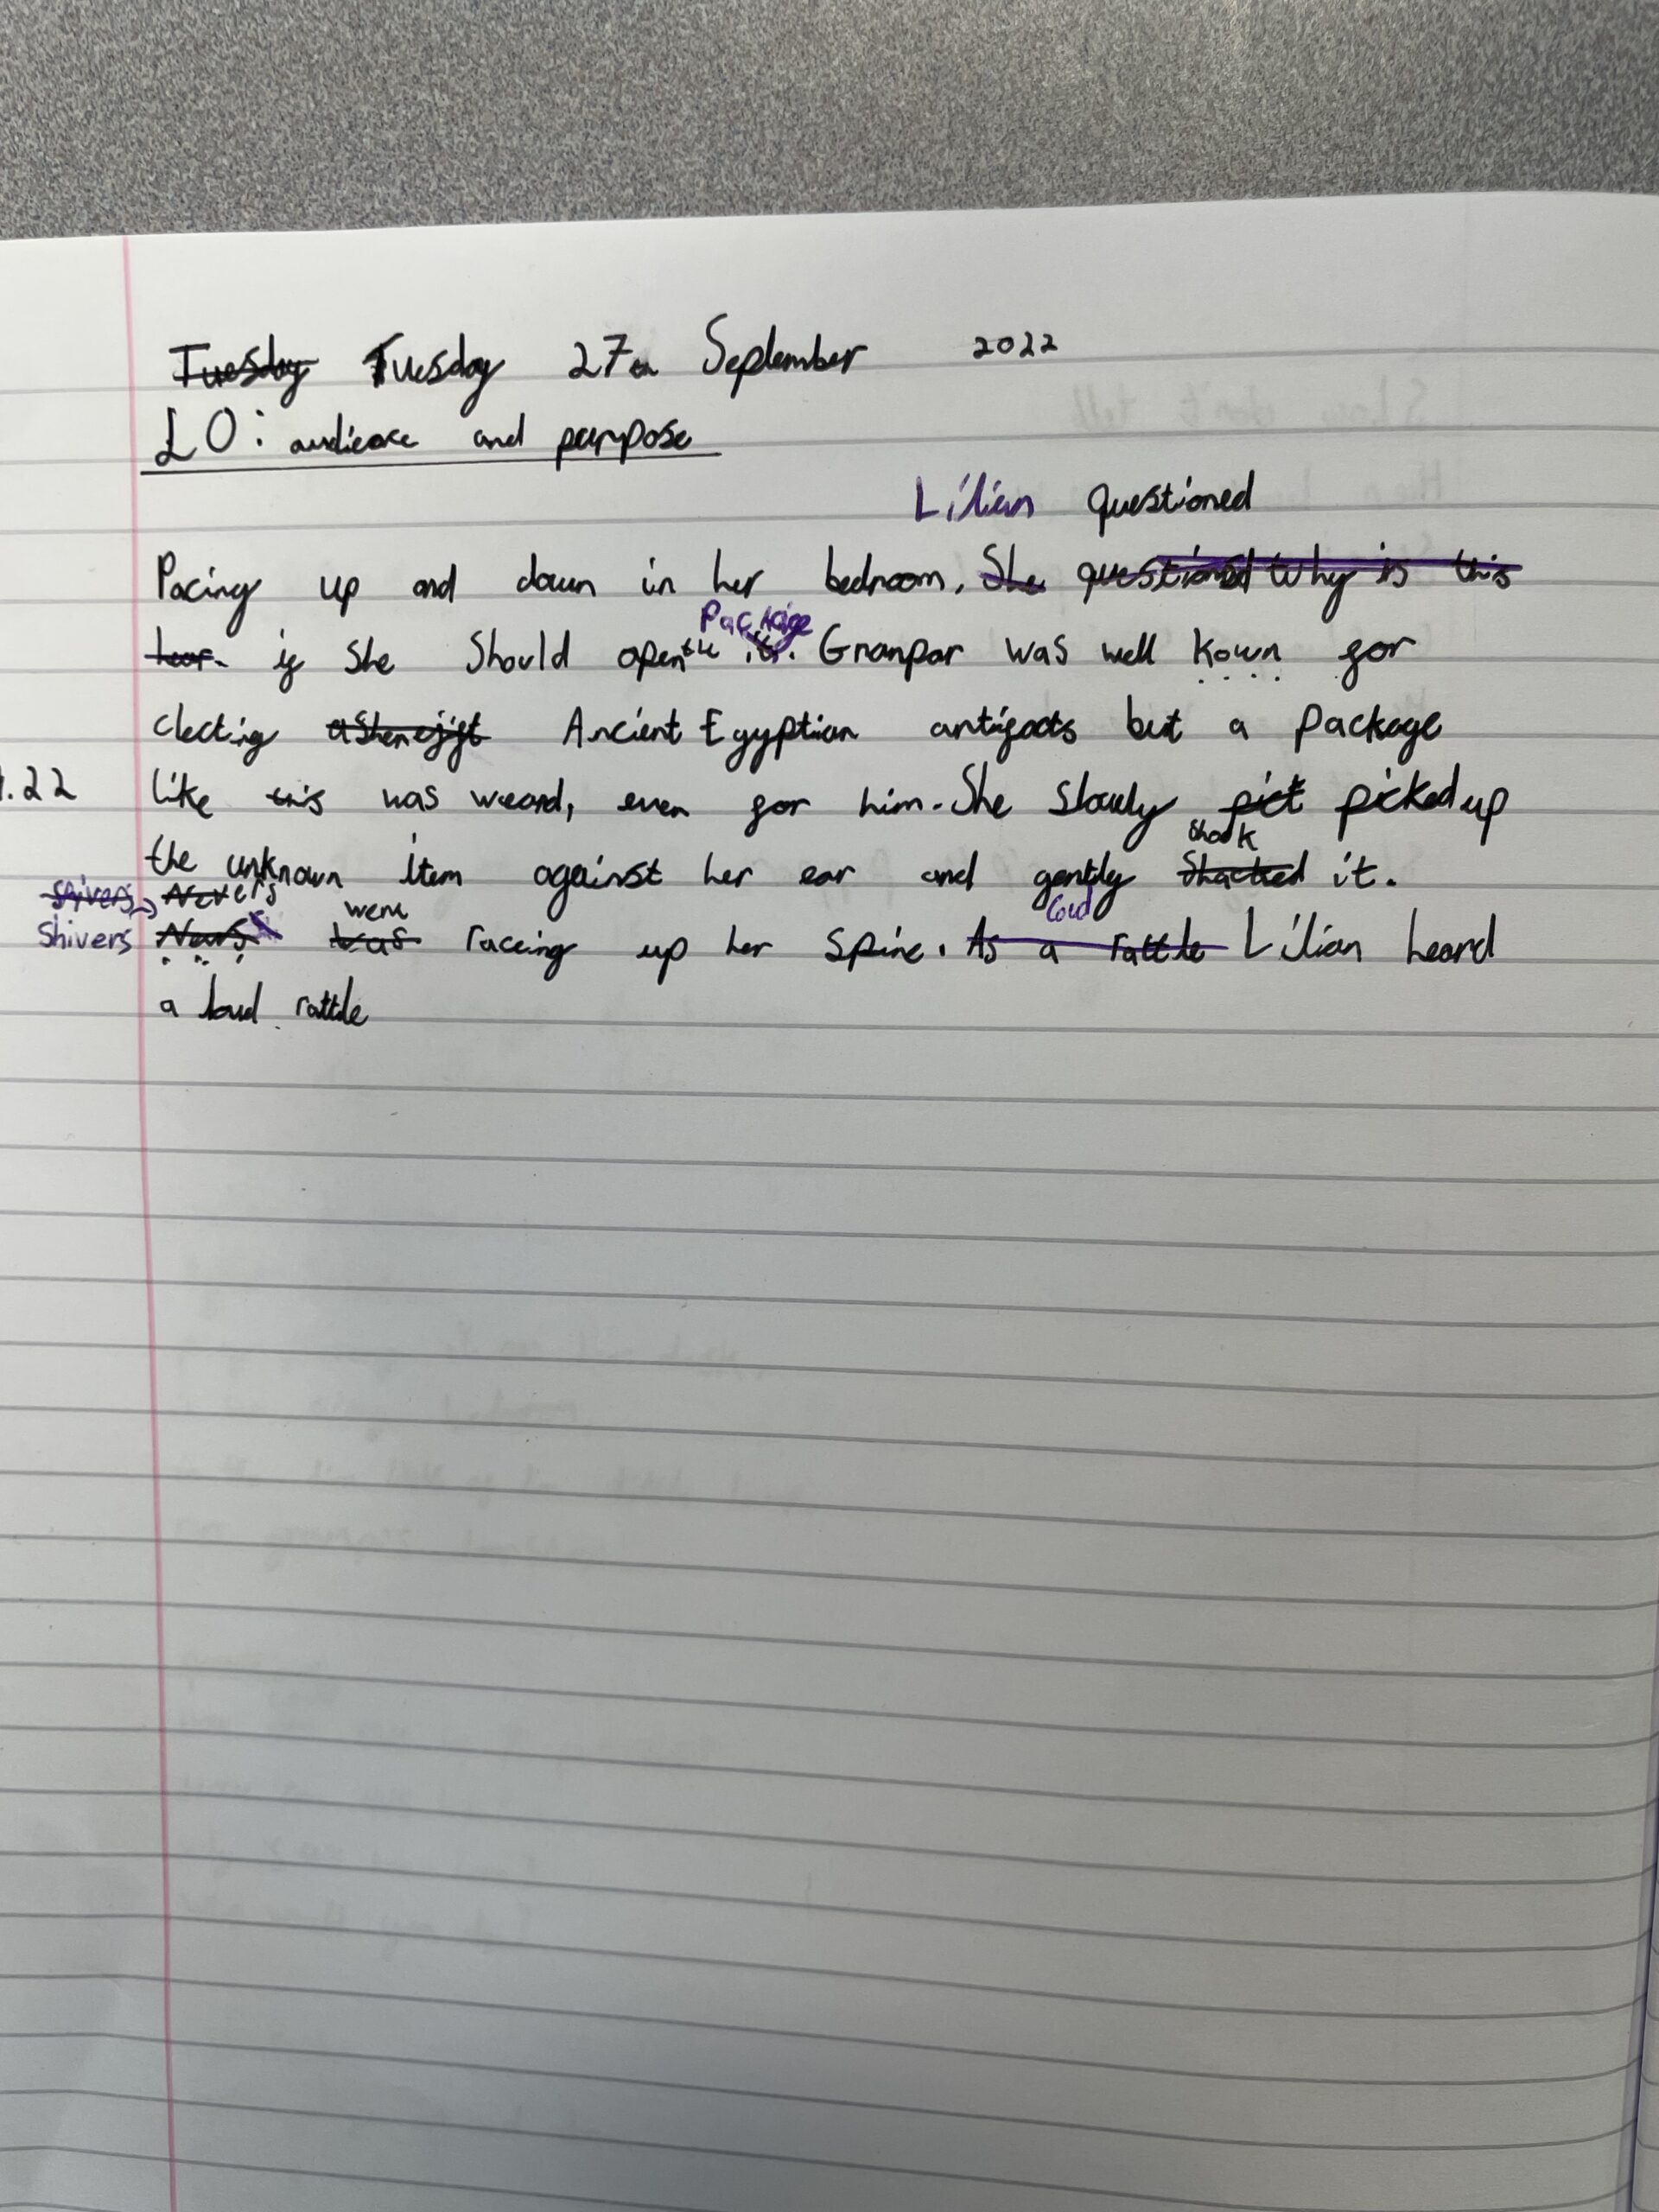 Tuesday Tuesday 27th September 2022
LO: audience and purpose
Lilian questioned
Pacing up and down in her bedroom. She questioned why is this
Package
hear. if She Should open the it. Granpar was well kown for
clecting Ancient Egyptian antifacts but a package
1.22 like this was weard, even for him. She slowly pict picked up
shook
the unknown item against her ear and gently Shacked it.
shivers Nervers
were Loud
Shivers Nervs was raceing up her spine. As a rattle Lilian heard
a loud rattle